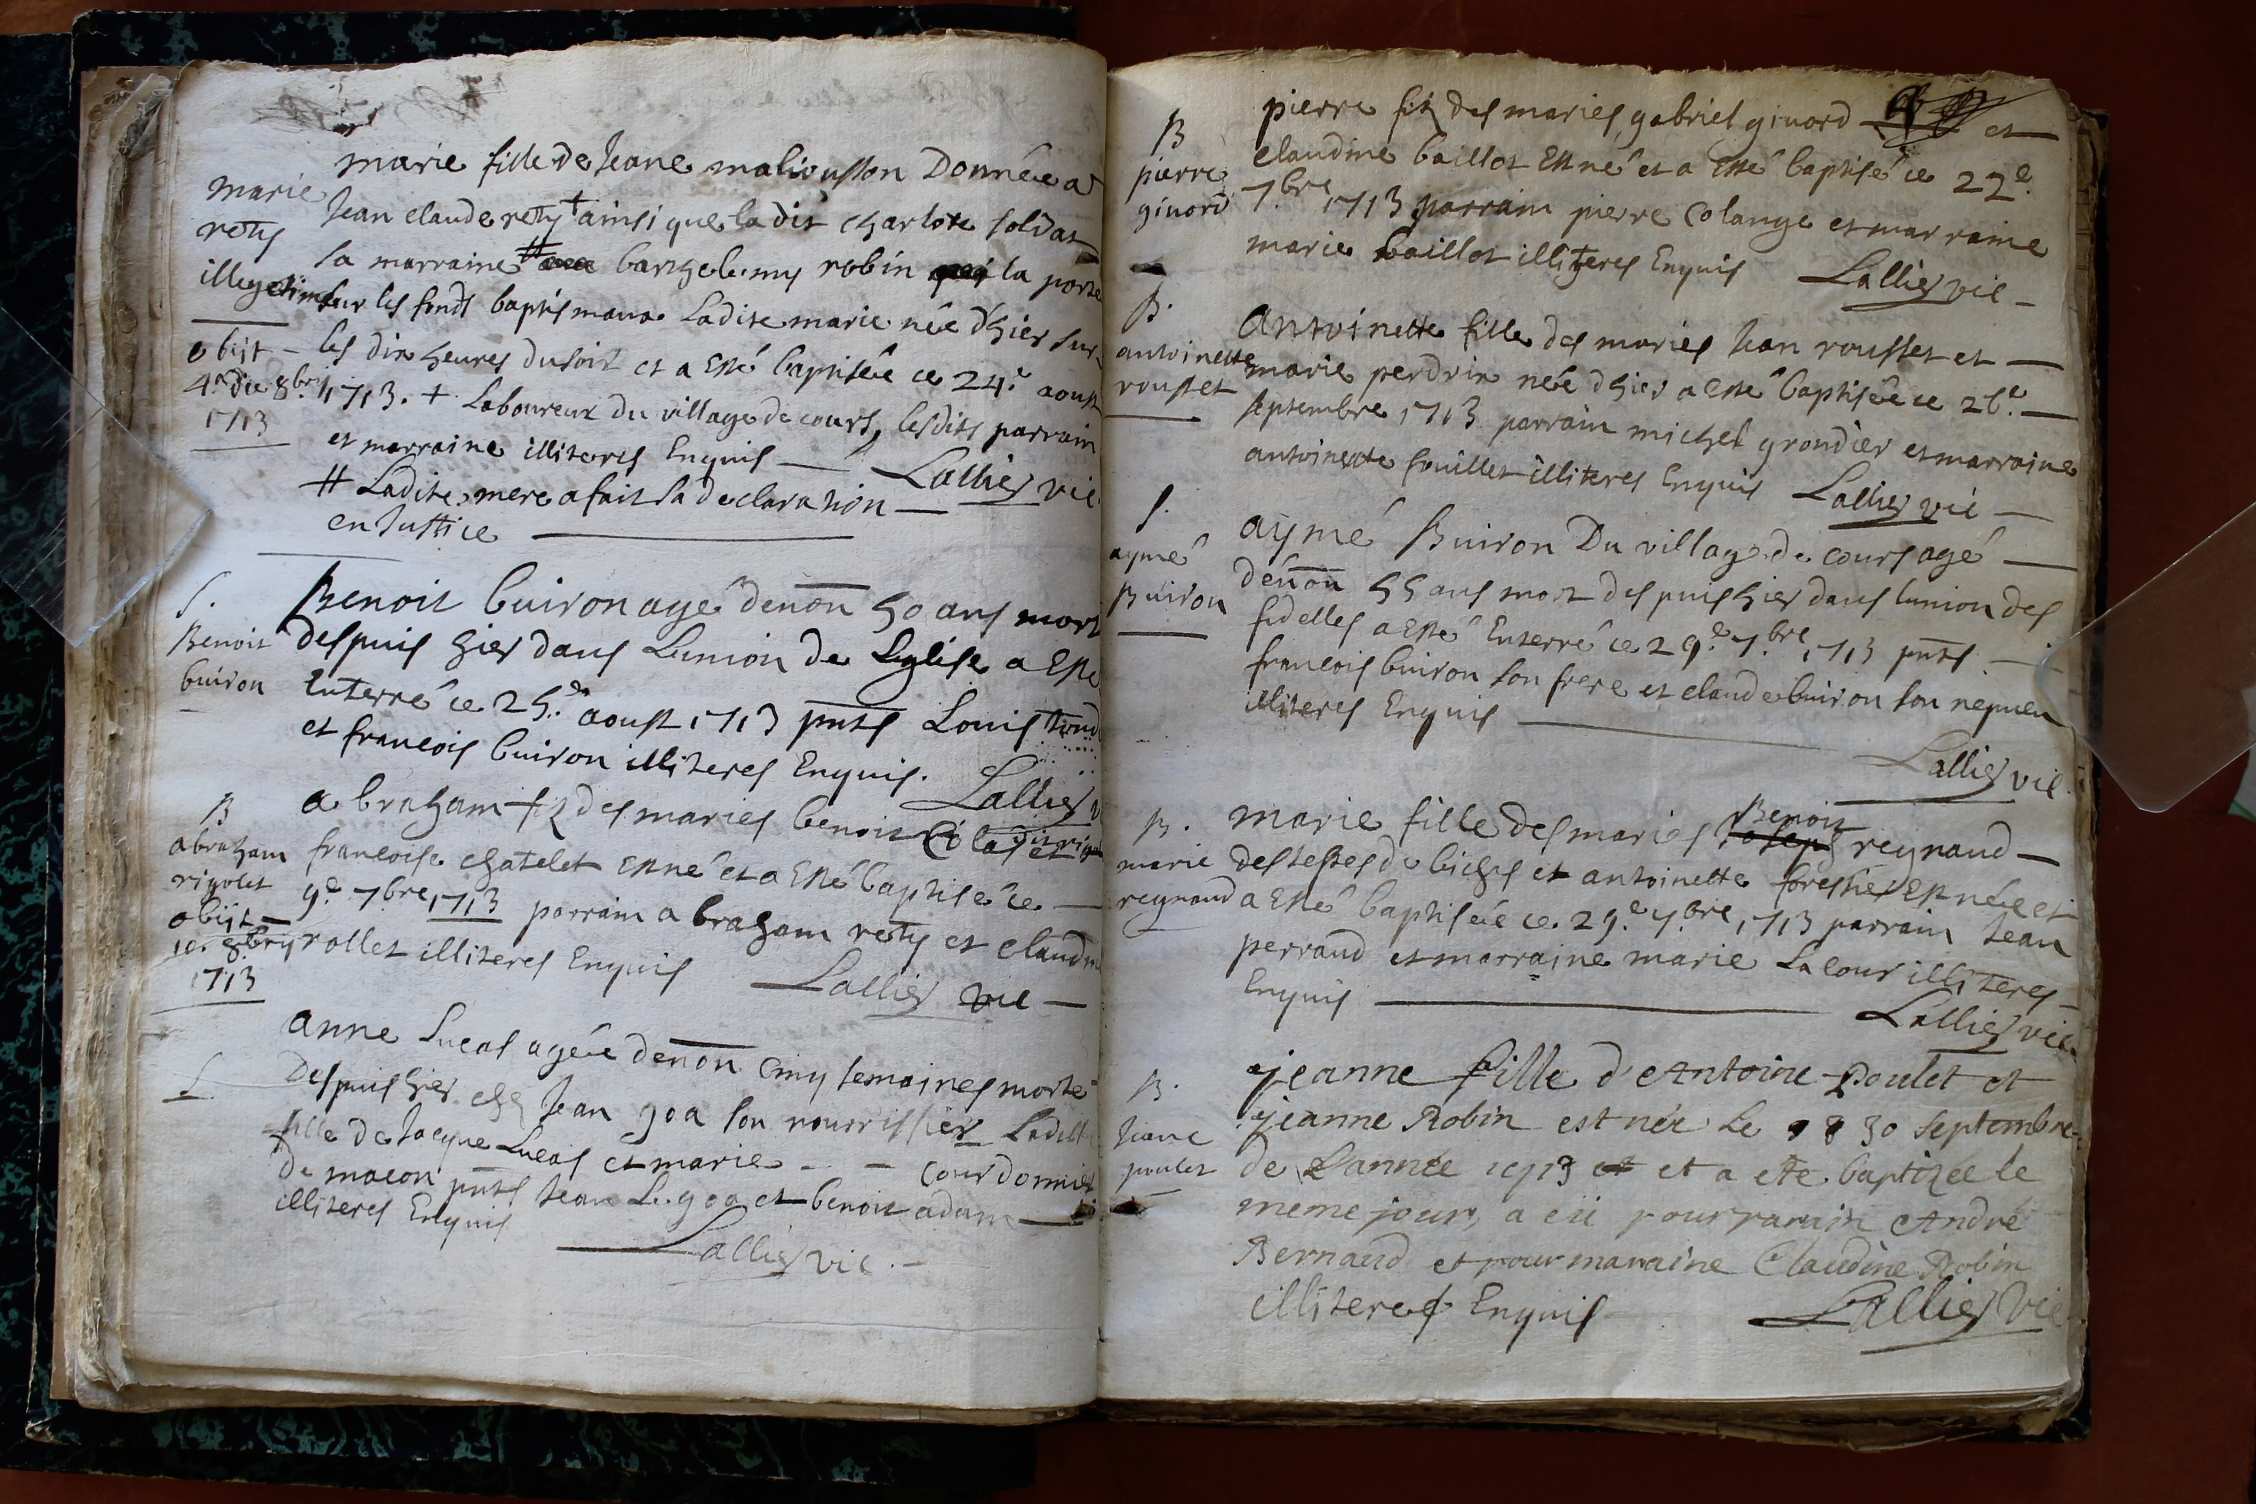 marie
retÿ
illegetime
obijt –
4.a die 8bris
1713
marie fille de Jeane maliousson Donnée a
Jean claude retÿ + ainsi que la dit charlote soldat
sa marraine # barthelemy robin la porte
sur les fonds baptismaux Ladite marie née d'hier sur
les dix heures du soir et a Esté baptisée ce 24.e aoust
1713. + Laboureur du village de cours, lesdits parrain
et marraine illiteres Enquis — Lallier vic.
# Ladite mere a fait sa declaration —
en Justice —
S.
Benoit
buiron
Benoit buiron agé denōn 50 ans mort
despuis hier dans Lunion de Leglise a Esté
Enterré ce 25.e aoust 1713 pnts Louis
et francois buiron illiteres Enquis.
Lallier v
B
abraham
rigolet
obijt –
10. 8bris
1713
abraham fiz des maries benoit et
francoise chatelet Est né et a Esté baptisé ce —
9.e 7bre 1713 parrain abraham retÿ et claudine
rollet illiteres Enquis Lallier vic —
S.
anne Lucas agée denōn cinq semaines morte
Despuis hier chez Jean goa son nourrissier Ladite
fille de Jacque Lucas et marie - - courdonnier
de macon pnts Jean Le goa et benoit adam —
illiteres Enquis
Lallier vic. –
B
pierre
ginord
pierre fiz des maries gabriel ginord et
claudine baillot Est né et a Esté baptisé ce 22.e
7.bre 1713 parrain pierre Colange et marraine
marie baillot illiteres Enquis Lallier vic –
B.
antoinette
rousset
antoinette fille des maries Jean rousset et —
marie perdrix née d'hier a Esté baptisée ce 26.e —
septembre 1713 parrain michel grondier et marraine
antoinette fouillet illiteres Enquis Lallier vic —
S.
aymé
Buiron
aymé Buiron Du village de cours agé —
denōn 55 ans mort despuis hier dans lunion des
fidelles a Esté Enterré ce 29.e 7.bre 1713 pnts —
francois buiron son frere et claude buiron son nepueu
illiteres Enquis —
Lallier vic.
B.
marie
reynaud
Benoit
marie fille des maries Joseph reynaud —
des testes de biches et antoinette forestier Est née et
a Esté baptisée ce 29.e 7.bre 1713 parrain Jean
perraud et marraine marie Lacour illiteres –
Enquis — Lallier vic.
B.
Jeane
poulet
jeanne fille d'Antoine Poulet et
jeanne Robin est née Le 30 septembre
de L'année 1713 et a eté baptizée le
meme jour, a eü pour parain André
Bernaud et pour maraine Claudine Robin
illiteres Enquis Lallier Vic